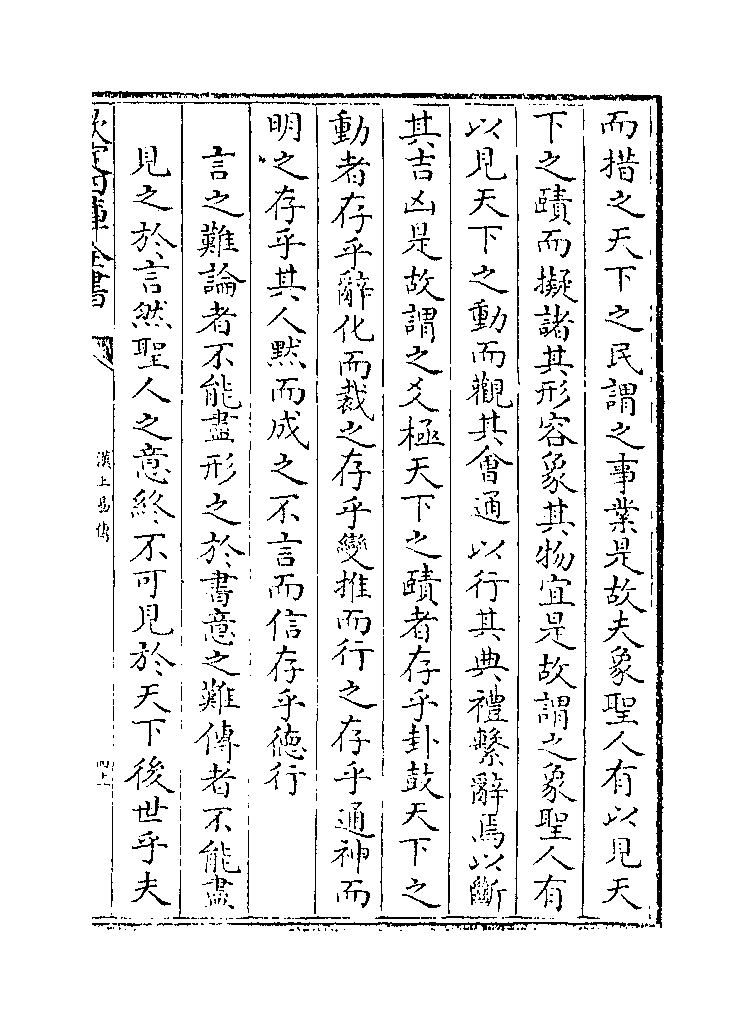 而措之天下之民謂之事業是故夫象聖人有以見天
下之賾而擬諸其形容象其物宜是故謂之象聖人有
以見天下之動而觀其會通以行其典禮繫辭焉以斷
其吉凶是故謂之爻極天下之賾者存乎卦鼓天下之
動者存乎辭化而裁之存乎變推而行之存乎通神而
明之存乎其人黙而成之不言而信存乎徳行
言之難論者不能盡形之於書意之難傳者不能盡
見之於言然聖人之意終不可見於天下後世乎夫
欽定四庫全書
漢上易傳